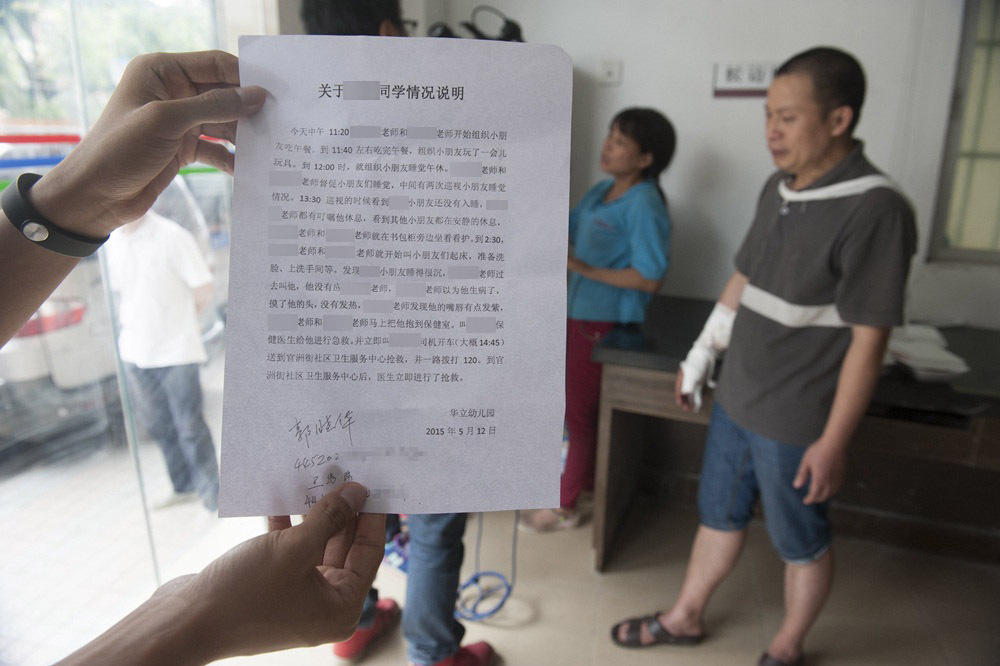 关于 同学情况说明
今天中午 11:20 老师和 老师开始组织小朋
友吃午餐。到 11:40 左右吃完午餐，组织小朋友玩了一会儿
玩具。到 12:00 时，就组织小朋友睡觉午休。 老师和
老师督促小朋友们睡觉，中间有两次巡视小朋友睡觉
情况。13:30 巡视的时候看到 小朋友还没有入睡，
老师都有叮嘱他休息，看到其他小朋友都在安静的休息，
老师和 老师就在书包柜旁边坐看看护，到 2:30，
老师和 老师就开始叫小朋友们起床，准备洗
脸、上洗手间等。发现 小朋友睡得很沉， 老师过
去叫他，他没有 老师， 老师以为他生病了，
摸了他的头，没有发热， 老师发现他的嘴唇有点发紫，
老师和 老师马上把他抱到保健室。叫 保
健医生给他进行急救，并立即叫 司机开车（大概 14:45）
送到官洲街社区卫生服务中心抢救，并一路拨打 120。到官
洲街社区卫生服务中心后，医生立即进行了抢救。
华立幼儿园
2015 年 5 月 12 日
44520